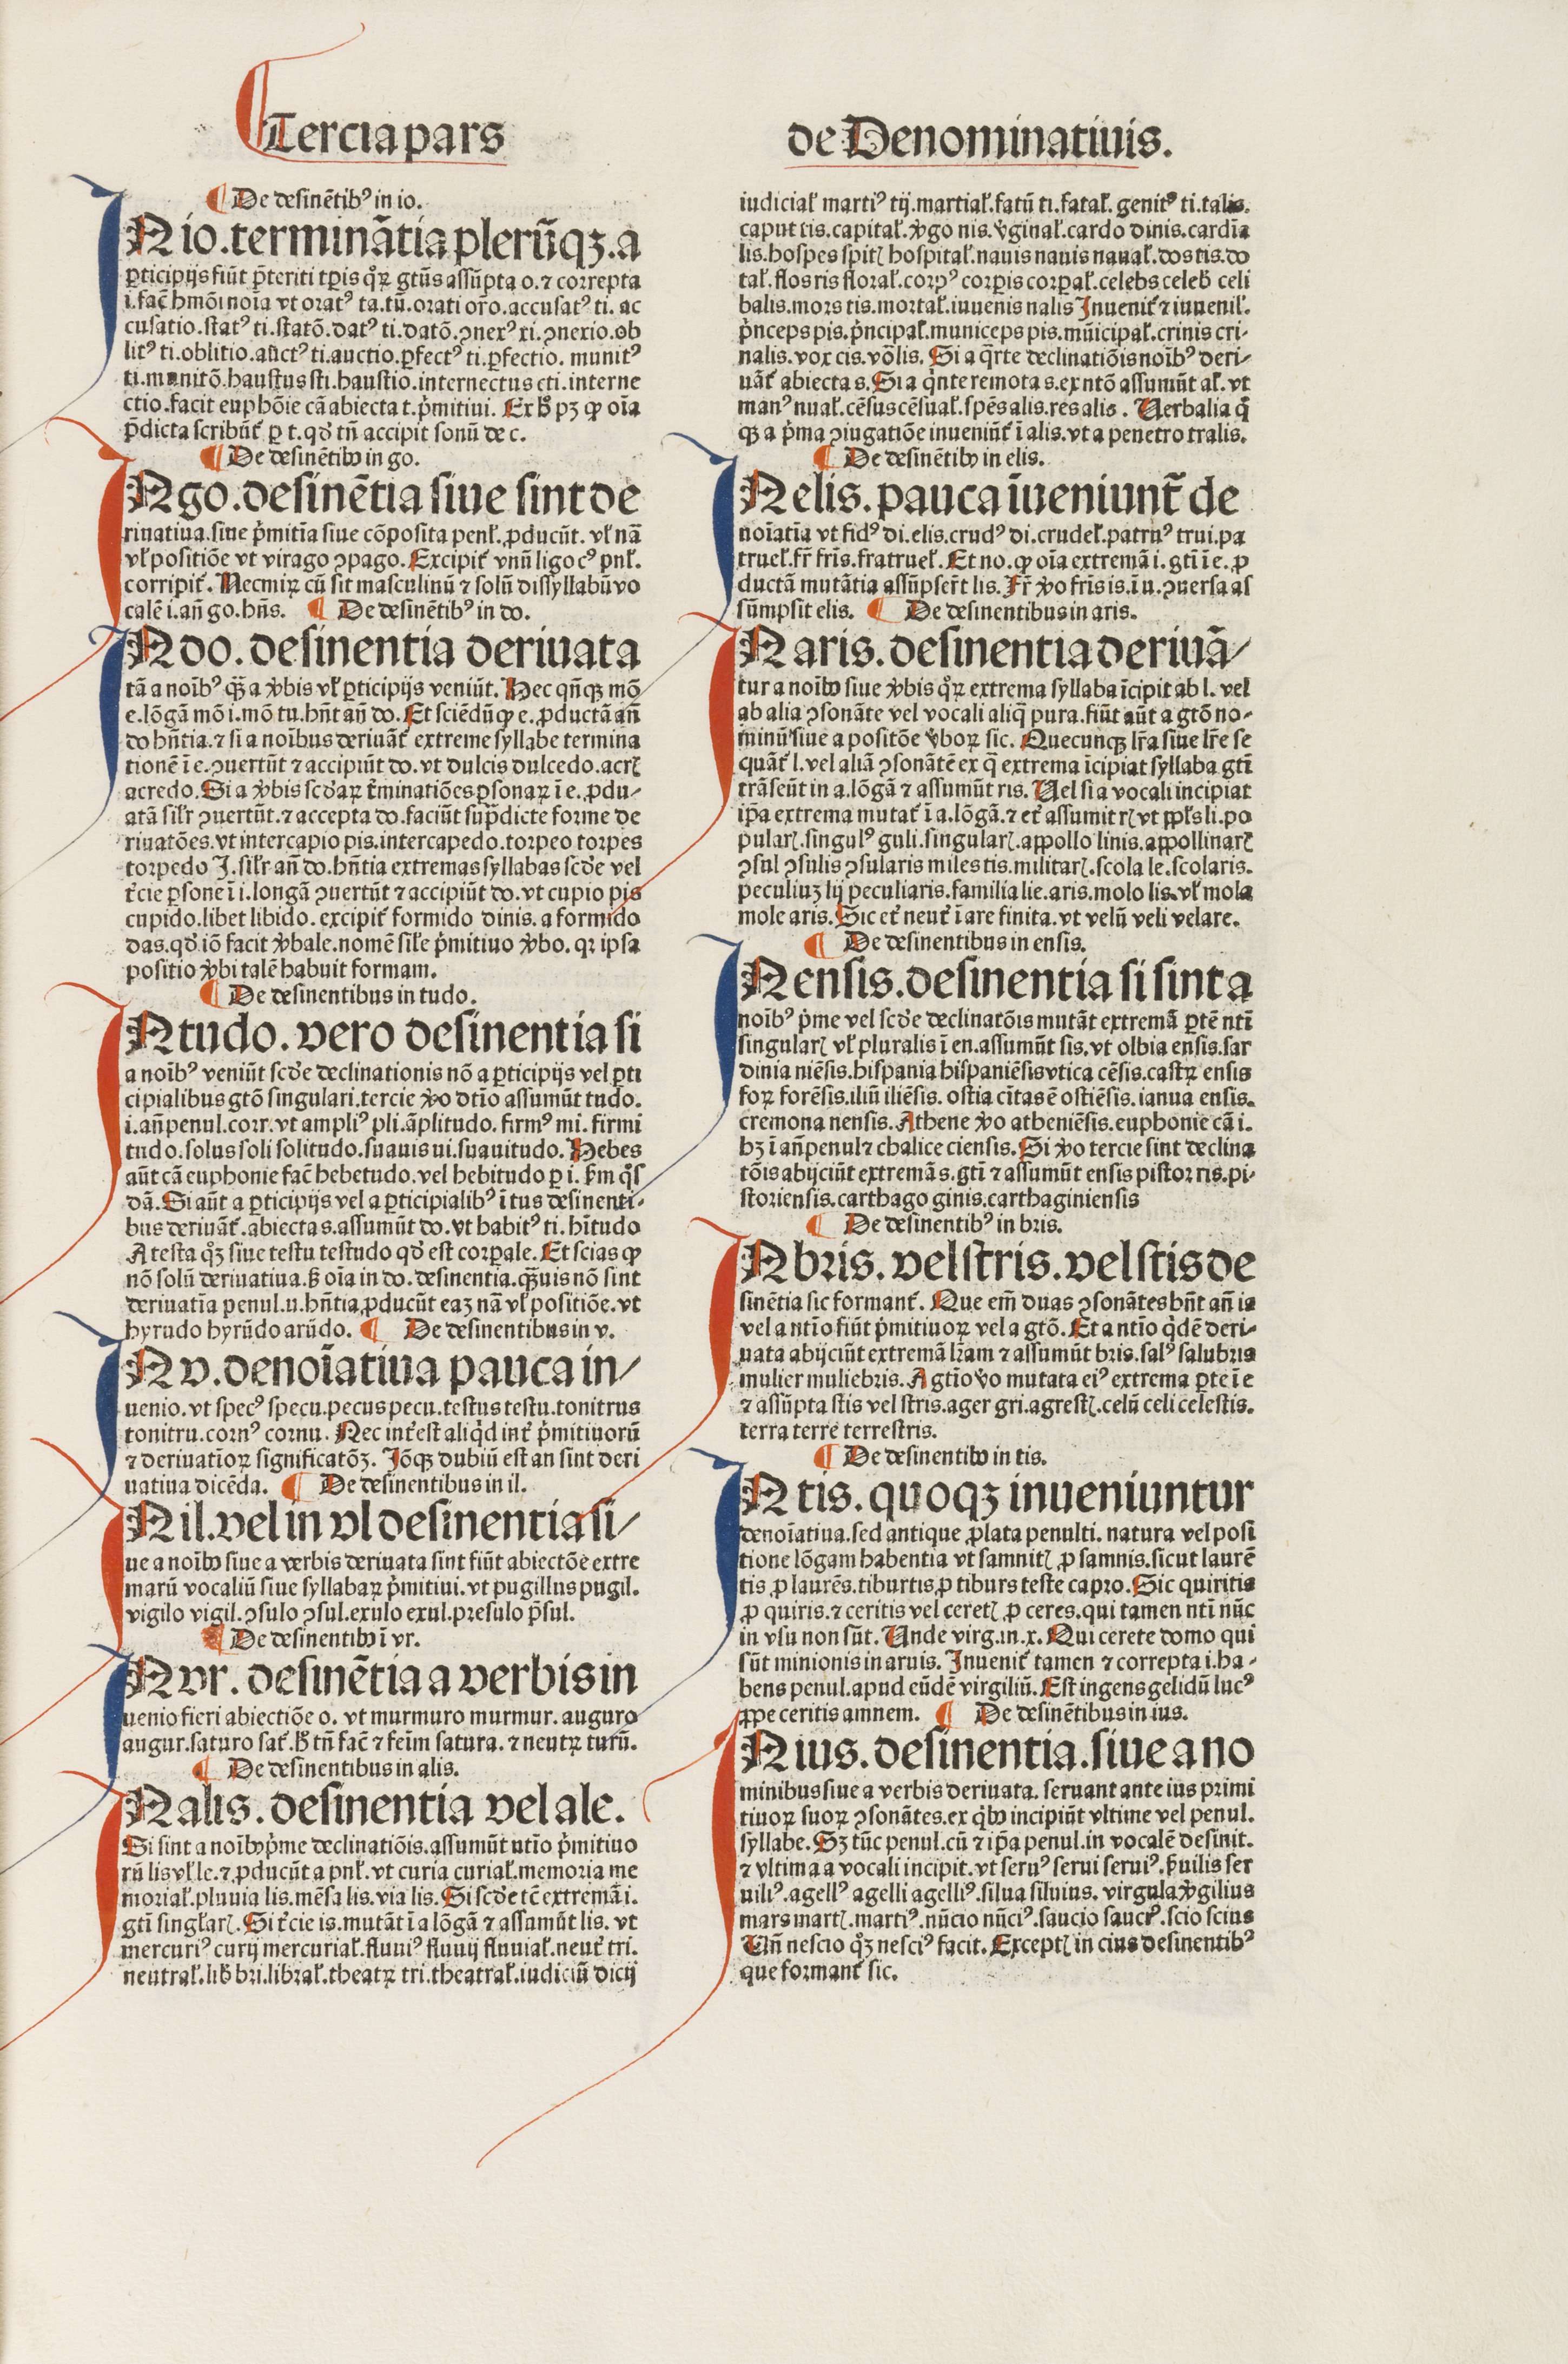 Tercia pars
de Denominatiuis.
¶ De desinẽtibꝰ in io.
IN io.terminãtia plerũqꝫ.a
ꝑticipijs fiũt p̃teriti tꝑis qͦꝝ gtũs assũpta o.⁊ correpta
i.facͥ hmõi noĩa vt oratꝰ ta.tũ.orati or̃o.accusatꝰ ti. ac
cusatio.statꝰ ti.statõ.datꝰ ti.datõ.ꝯnexꝰ xi.ꝯnexio.ob
litꝰ ti.oblitio.auctꝰ ti.auctio.ꝑfectꝰ ti.ꝑfectio. munitꝰ
ti.munitõ.haustus sti.haustio.internectus cti.interne
ctio.facit euphõie cã abiecta t.pͥmitiui. Ex hͦ pꝫ ꝙ oĩa
p̃dicta scribũt᷑ ꝑ t.qđ tñ accipit sonũ de c.
¶ De desinẽtibꝫ in go.
IN go.desinẽtia siue sint de
riuatiua.siue pͥmitĩa siue cõposita penł.ꝓducũt. vł nã
vł positiõe vt virago ꝯpago. Excipit᷑ vnũ ligo cꝰ pnł.
corripit᷑. Nec mirꝝ cũ sit masculinũ ⁊ solũ dissyllabũ vo
calẽ i.añ go.hñs. ¶ De desinẽtibꝰ in do.
IN do.desinentia deriuata
tã a noĩbꝰ q̃ꝫ a v̾bis vł ꝑticipijs veniũt. Hec qñqꝫ mõ
e.lõgã mõ i.mõ tu.hñt añ do. Et sciẽdũ ꝙ e.ꝓductã añ
do hñtia.⁊ si a noĩbus deriuãt᷑ extreme syllabe termina
tionẽ ĩ e.ꝯuertũt ⁊ accipiũt do. vt dulcis dulcedo.acrꝭ
acredo. Si a v̾bis scđaꝝ t̾minatiões ꝑsonaꝝ ĩ e.ꝓdu-
ctã sił̃r ꝯuertũt.⁊ accepta do.faciũt sup̃dicte forme de
riuatões.vt intercapio pis.intercapedo.torpeo torpes
torpedo I.sił̃r añ do.hñtia extremas syllabas scđe vel
t̾cie ꝑsone ĩ i.longã ꝯuertũt ⁊ accipiũt do. vt cupio pis
cupido.libet libido. excipit᷑ formido dinis.a formido
das.qđ iõ facit v̾bale.nomẽ siłe pͥmitiuo v̾bo. qꝛ ipsa
positio v̾bi talẽ habuit formam.
¶ De desinentibus in tudo.
IN tudo. vero desinentia si
a noĩbꝰ veniũt scđe declinationis nõ a ꝑticipijs vel ꝑti
cipialibus gtõ singulari.tercie v̾o dtĩo assumũt tudo.
i.añ penul.corr.vt ampliꝰ pli.ãplitudo. firmꝰ mi. firmi
tudo.solus soli solitudo.suauis ui.suauitudo. Hebes
aũt cã euphonie facͥ hebetudo.vel hebitudo ꝑ i. ẜm qͦs
dã. Si aũt a ꝑticipijs vel a ꝑticipialibꝰ ĩ tus desinenti-
bus deriuãt᷑.abiecta s.assumũt do.vt habitꝰ ti.hĩtudo
A testa qͦꝫ siue testu testudo qđ est corꝑale. Et scias ꝙ
nõ solũ deriuatiua.ẜ oĩa in do.desinentia.q̃ꝫuis nõ sint
deriuatĩa penul.u.hñtia.ꝓducũt eaꝫ nã vł positiõe.vt
hyrudo hyrũdo arũdo. ¶ De desinentibus in v.
IN v.denoĩatiua pauca in-
uenio.vt specꝰ specu.pecus pecu.testus testu.tonitrus
tonitru.cornꝰ cornu. Nec int̾est aliqͥd int̾ pͥmitiuorũ
⁊ deriuatĩoꝝ significatõꝫ. Iõqꝫ dubiũ est an sint deri
uatiua dicẽda. ¶ De desinentibus in il.
IN il.vel in vl desinentia si-
ue a noĩbꝫ siue a verbis deriuata sint fiũt abiectõe extre
marũ vocaliũ siue syllabaꝝ pͥmitiui.vt pugillus pugil.
vigilo vigil.ꝯsulo ꝯsul.exulo exul.presulo p̃sul.
¶ De desinentibꝫ ĩ vr.
IN vr. desinẽtia a verbis in
uenio fieri abiectiõe o. vt murmuro murmur. auguro
augur.saturo sat᷑.hͦ tñ facͥ ⁊ feĩm satura.⁊ neutꝝ turũ.
¶ De desinentibus in alis.
IN alis.desinentia vel ale.
Si sint a noĩbꝫ pͥme declinatiõis.assumũt ntĩo pͥmitiuo
rũ lis vł le.⁊ ꝓducũt a pnł. vt curia curiał.memoria me
moriał.pluuia lis.mẽsa lis.via lis. Si scđe tc̃ extremã i.
gtĩ singłarꝭ. Si t̾cie is.mutãt ĩ a lõgã ⁊ assumũt lis. vt
mercuriꝰ curij mercuriał.fluuiꝰ fluuij fluuiał.neut᷑ tri.
neutrał.lib̾ bri.librał.theatꝝ tri.theatrał.iudiciũ dicij
iudiciał martiꝰ tij.martiał.fatũ ti.fatał. genitꝰ ti.talis.
caput tis.capitał.v̾go nis.v̾ginał.cardo dinis.cardĩa
lis.hospes spitꝭ hospitał.nauis nauis nauał.dos tis.do
tał.flos ris florał.corpꝰ corꝑis corꝑał.celebs celeb̾ celi
balis.mors tis.mortał.iuuenis nalis Inuenit᷑ ⁊ iuuenił.
pͥnceps pis.pͥncipał.municeps pis.mũicipał.crinis cri-
nalis.vox cis.võlis. Si a q̃rte declinatiõis noĩbꝰ deri-
uãt᷑ abiecta s. Si a qͥnte remota s.ex ntõ assumũt ał. vt
manꝰ nuał.cẽsus cẽsuał.spẽs alis.res alis. Uerbalia q̃
qꝫ a pͥma ꝯiugatiõe inueniũt᷑ ĩ alis.vt a penetro tralis.
¶ De desinẽtibꝫ in elis.
IN elis.pauca ĩueniunt᷑ de
noĩatĩa vt fidꝰ di.elis.crudꝰ di.crudeł.patruꝰ trui.pa
trueł.fr̃ fr̃is.fratrueł. Et no.ꝙ oĩa extremã i.gtĩ ĩ e.ꝓ
ductã mutãtia assũpser̃t lis. Fr̃ v̾o fr̃is is.ĩ u.ꝯuersa as
sũmpsit elis. ¶ De desinentibus in aris.
IN aris.desinentia deriuã-
tur a noĩbꝫ siue v̾bis qͦꝝ extrema syllaba ĩcipit ab l. vel
ab alia ꝯsonãte vel vocali aliq̃ pura.fiũt aũt a gtõ no-
minũ siue a positõe v̾boꝝ sic. Quecunqꝫ lr̃a siue lr̃e se
quãt᷑ l.vel aliã ꝯsonãtẽ ex q̃ extrema ĩcipiat syllaba gtĩ
trãseũt in a.lõgã ⁊ assumũt ris. Uel si a vocali incipiat
ip̃a extrema mutat᷑ ĩ a.lõgã.⁊ et᷑ assumit rꝭ vt ppłs li.po
pularꝭ.singulꝰ guli.singularꝭ.appollo linis.appollinarꝭ
ꝯsul ꝯsulis ꝯsularis miles tis.militarꝭ.scola le.scolaris.
peculiuꝫ lij peculiaris.familia lie.aris.molo lis.vł mola
mole aris. Sic et᷑ neut᷑ ĩ are finita.vt velũ veli velare.
¶ De desinentibus in ensis.
IN ensis.desinentia si sint a
noĩbꝰ pͥme vel scđe declinatõis mutãt extremã ꝑtẽ ntĩ
singularꝭ vł pluralis ĩ en.assumũt sis.vt olbia ensis.sar
dinia niẽsis.hispania hispaniẽsis vtica cẽsis.castꝝ ensis
foꝝ forẽsis.iliũ iliẽsis. ostia cĩtas ẽ ostiẽsis.ianua ensis.
cremona nensis. Athene v̾o atheniẽsis.euphonie cã i.
hꝫ ĩ añ penul ⁊ chalice ciensis. Si v̾o tercie sint declina
tõis abijciũt extremã s.gtĩ ⁊ assumũt ensis pistor ris.pi-
storiensis.carthago ginis.carthaginiensis
¶ De desinentibꝰ in bris.
IN bris. vel stris.vel stis de
sinẽtia sic formant᷑. Que em̃ duas ꝯsonãtes hñt añ is
vel a ntĩo fiũt pͥmitiuoꝝ vel a gtõ. Et a ntĩo qͥdẽ deri-
uata abijciũt extremã lr̃am ⁊ assumũt bris.salꝰ salubris
mulier muliebris. A gtĩo v̾o mutata eiꝰ extrema ꝑte ĩ e
⁊ assũpta stis vel stris.ager gri.agrestꝭ.celũ celi celestis.
terra terre terrestris.
¶ De desinentibꝫ in tis.
IN tis.quoqꝫ inueniuntur
denoĩatiua.sed antique ꝓlata penulti. natura vel posi
tione lõgam habentia vt samnitꝭ ꝓ samnis.sicut laurẽ
tis ꝓ laurẽs.tiburtis ꝓ tiburs teste capro. Sic quiritis
ꝓ quiris.⁊ ceritis vel ceretꝭ ꝓ ceres.qui tamen ntĩ nũc
in vsu non sũt. Unde virg.in.x. Qui cerete domo qui
sũt minionis in aruis. Inuenit᷑ tamen ⁊ correpta i.ha-
bens penul.apud eũdẽ virgiliũ. Est ingens gelidũ lucꝰ
ꝓpe ceritis amnem. ¶ De desinẽtibus in ius.
IN ius.desinentia.siue a no
minibus siue a verbis deriuata. seruant ante ius primi
tiuoꝝ suoꝝ ꝯsonãtes.ex qͥbꝫ incipiũt vltime vel penul.
syllabe. Sꝫ tũc penul.cũ ⁊ ip̃a penul.in vocalẽ desinit.
⁊ vltima a vocali incipit.vt seruꝰ serui seruiꝰ.ẜuilis ser
uiliꝰ.agellꝰ agelli agelliꝰ.silua siluius. virgula v̾gilius
mars martꝭ.martiꝰ.nũcio nũciꝰ.saucio sauciꝰ.scio scius
Uñ nescio qͦꝫ nesciꝰ facit. Exceptꝭ in cius desinentibꝰ
que formant᷑ sic.